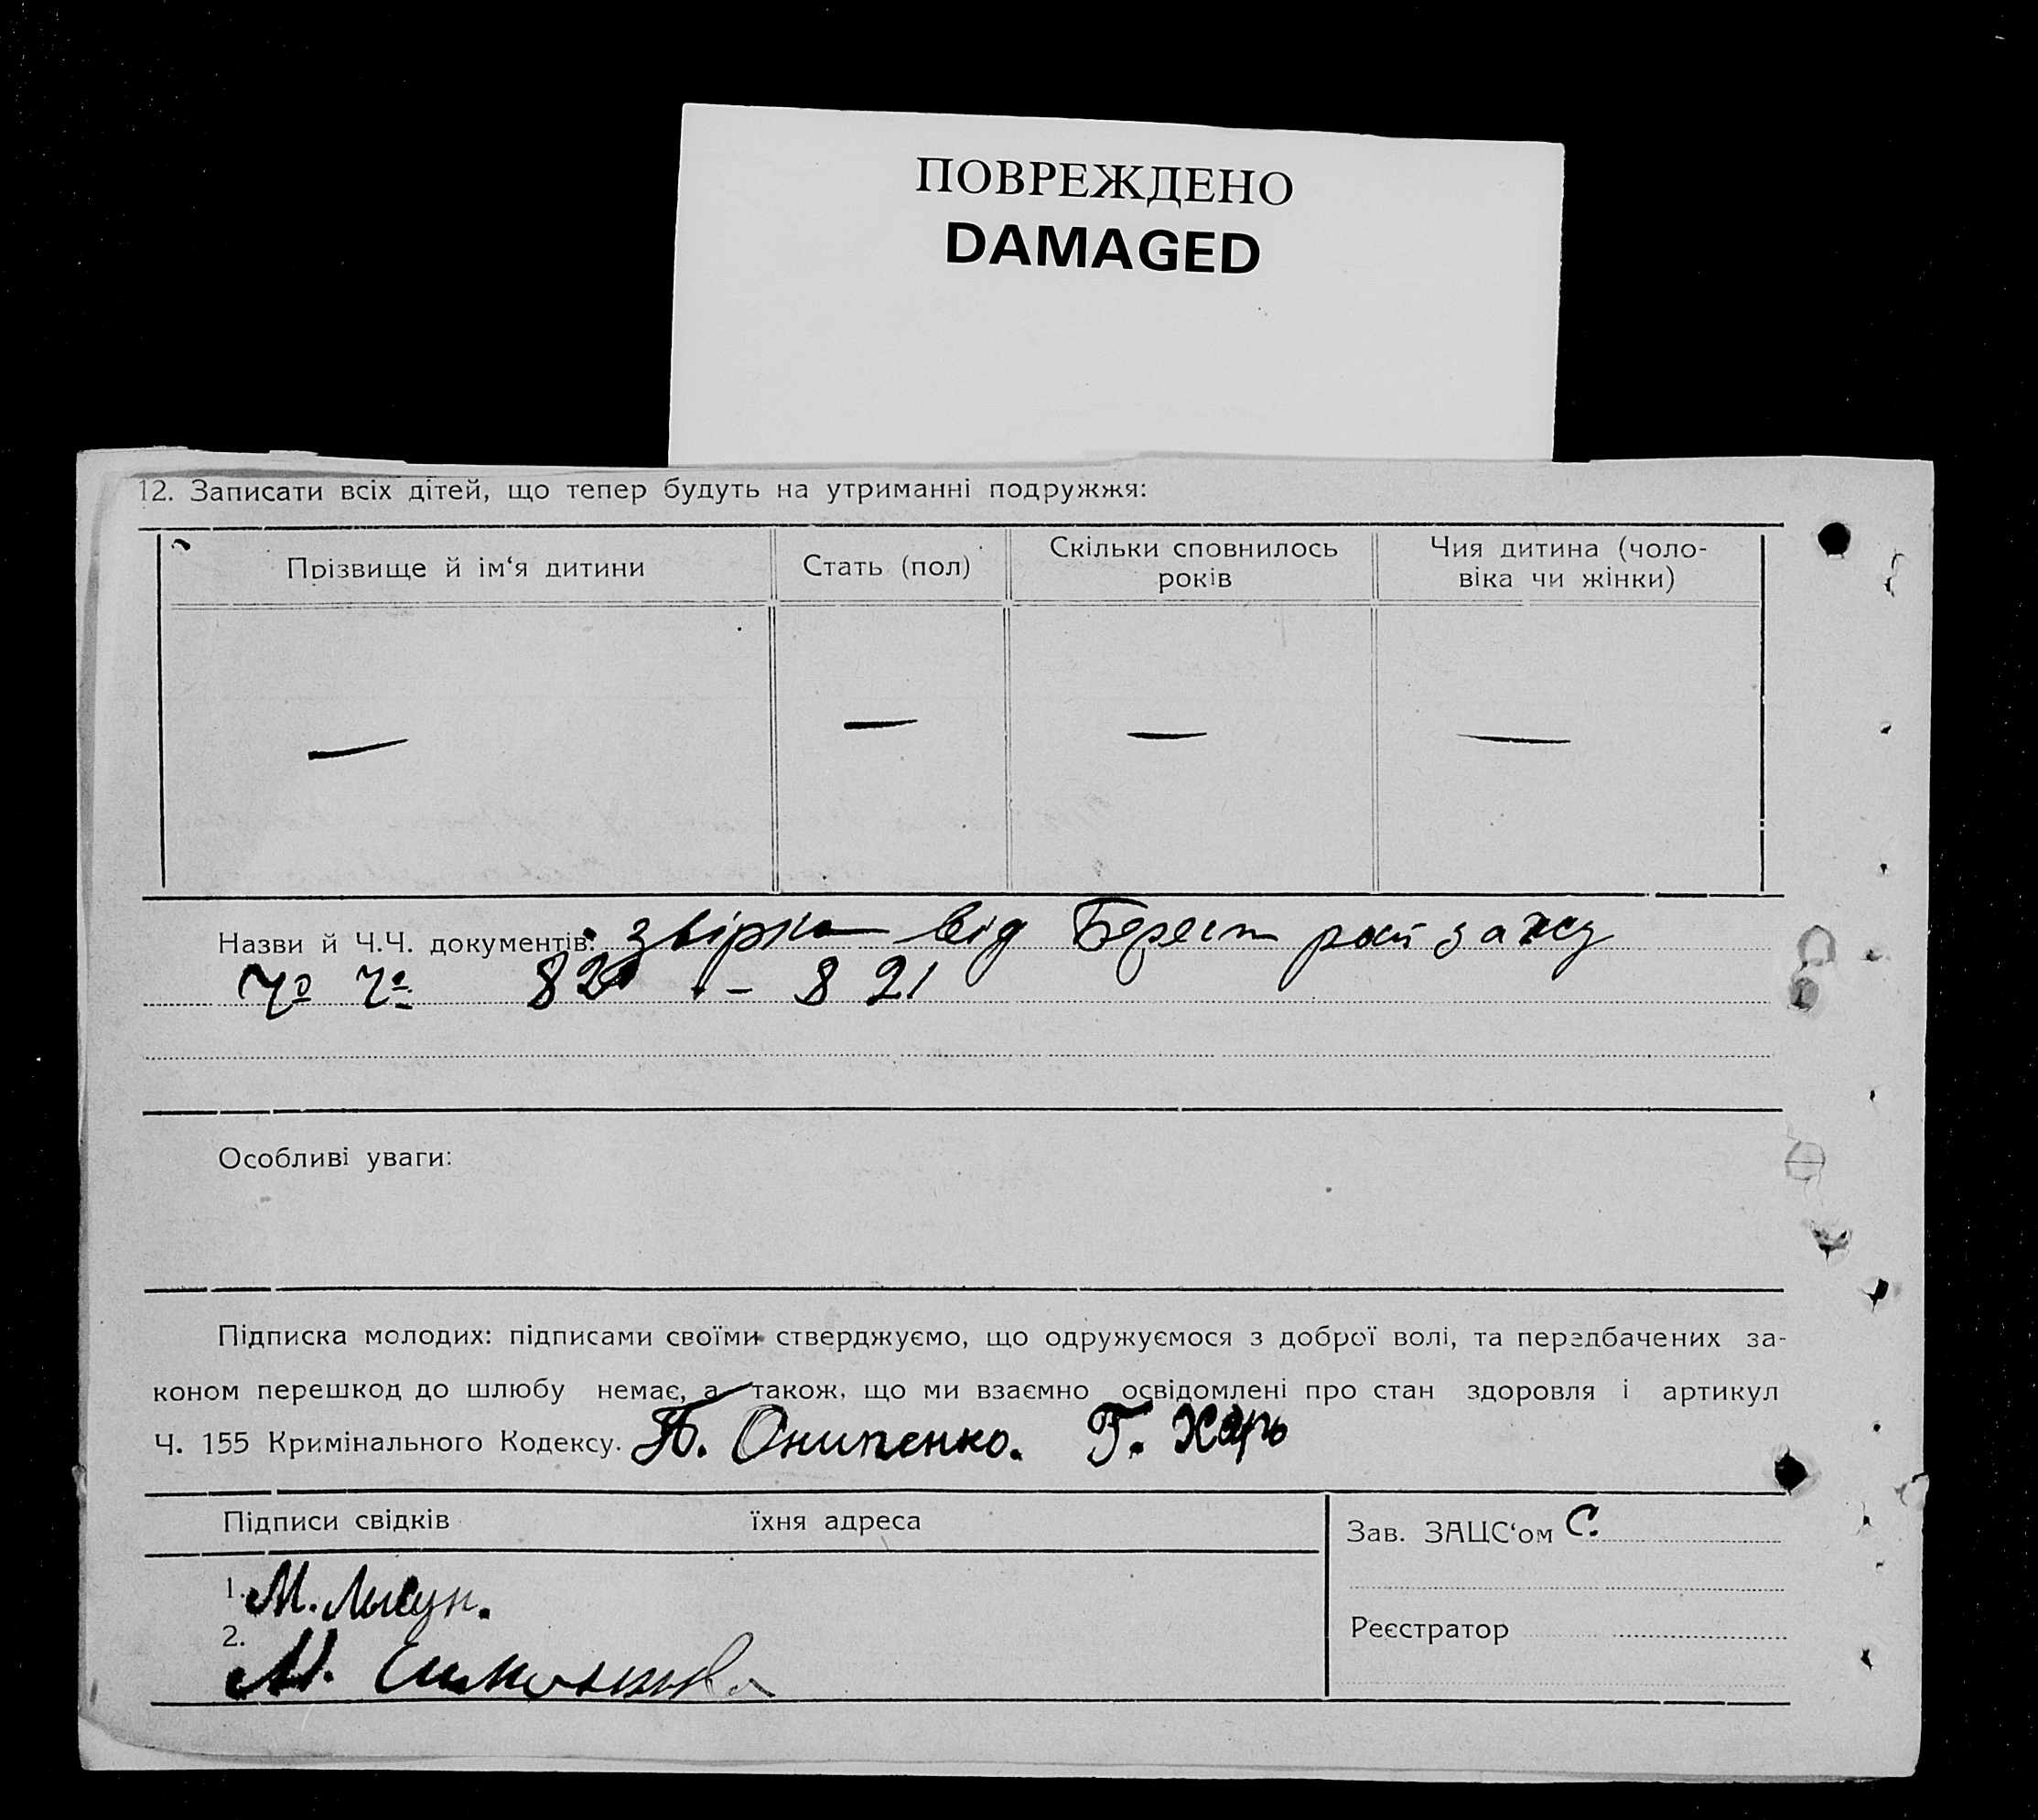 ПОВРЕЖДЕНО
DAMAGED
12. Записати всіх дітей, що тепер будуть на утриманні подружжя:
Прізвище й ім‘я дитини
Стать (пол)
Скільки сповнилось
років
Чия дитина (чоло-
віка чи жінки)
— — — —
Назви й Ч.Ч. документів: від Берест рай
82 – 821
Особливі уваги:
Підписка молодих: підписами своїми стверджуємо, що одружуємося з доброї волі, та передбачених за-
коном перешкод до шлюбу немає, а також, що ми взаємно освідомлені про стан здоровля і артикул
Ч. 155 Кримінального Кодексу. Онипенко. Г. Харь
Підписи свідків їхня адреса
Зав. ЗАЦС‘ом С.
1. М. Лысун.
2.
М.
Реєстратор